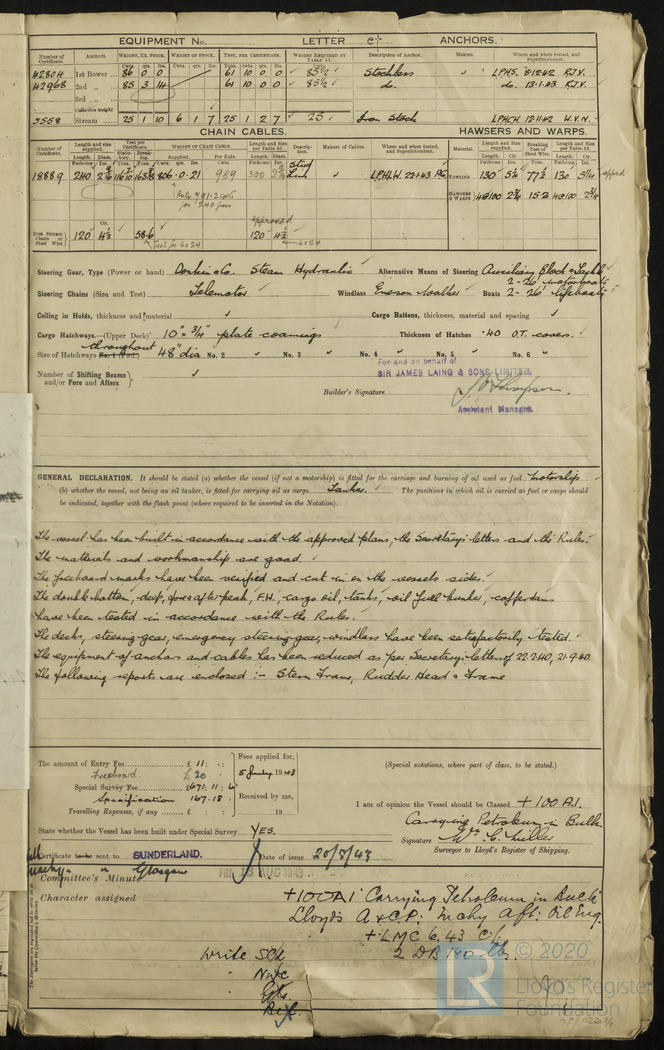 EQUIPMENT No. LETTER et ANCHORS.
Number of Certificate. Anchors. WEIGHT, EX. STOCK. WEIGHT OF STOCK. TEST, PER CERTIFICATE. WEIGHT REQUIRED BY TABLE 53. Description of Anchor. Makers. Where and when tested, and Superintendent.
Cwts. qrs. lbs. Cwts. qrs. lbs. Tons. cwts. qrs. lbs. Cwts.
42804 1st Bower 86 0 0 61 10 0 0 85½ Stockless " LPHS. 8.12.42 R.J.V.
42968 2nd " 85 3 14 61 10 0 0 85½ do. do. 13.1.43 R.J.V.
3rd "
Collective weight
3558 Stream 25 1 10 6 1 7 25 1 2 7 25 Iron Stock LPHCH 12.11.42 W.V.N.
CHAIN CABLES. HAWSERS AND WARPS.
Number of Certificate. Length and size supplied. Test per Certificate. WEIGHT OF CHAIN CABLE. Length and size per Table 53. Description. Makers of Cables. Where and when tested, and Superintendent. Material. Length and size supplied. Breaking Test of Steel Wire. Length and size per Table 53.
Length. Diam. Statutory. Breaking. Supplied. Per Rule. Length. Diam.
18889 240 806.0.21 969 300 Stud Link LPHLH. 22.1.43 TOWLINE 130 5¼ 77½ 130 5¼ appd
Rule 791.2 cwts for 240 fms
HAWSERS & WARPS 4@100 2¾ 15.2 4@100 2¾
approved
Iron Stream Chain or Steel Wire 120 4½ 58.6 120 4½
Test for 6 x 24 6 x 24
Steering Gear, Type (Power or hand) Donkin & Co. Steam Hydraulic Alternative Means of Steering Auxiliary Block & Tackle
2 - 26' motorboats
Steering Chains (Size and Test) Telemotor Windlass Emerson Walker Boats 2 - 26' lifeboats
Ceiling in Holds, thickness and material Cargo Battens, thickness, material and spacing
Cargo Hatchways.—(Upper Deck) 10" x ¾" plate coamings Thickness of Hatches .40 O.T. covers.
throughout
Size of Hatchways No. 1 (Fwd.) 48" dia No. 2 " No. 3 " No. 4 " No. 5 " No. 6 "
Number of Shifting Beams and/or Fore and Afters
For and on behalf of
SIR JAMES LAING & SONS LIMITED.
Builder's Signature J. Thompson.
Assistant Manager.
GENERAL DECLARATION. It should be stated (a) whether the vessel (if not a motorship) is fitted for the carriage and burning of oil used as fuel Motorship
(b) whether the vessel, not being an oil tanker, is fitted for carrying oil as cargo Tanker. The positions in which oil is carried as fuel or cargo should
be indicated, together with the flash point (where required to be inserted in the Notation).
The vessel has been built in accordance with the approved plans, the Secretary's letters and the Rules.
The materials and workmanship are good.
The freeboard marks have been verified and cut in on the vessels sides.
The double bottom, deep, fore & after peak, F.W., cargo oil, tanks, oil fuel bunker, cofferdams
have been tested in accordance with the Rules.
The decks, steering gear, emergency steering gear, windlass have been satisfactorily tested.
The equipment of anchors and cables has been reduced as per Secretary's letters of 22.2.40, 21.9.40.
The following reports are enclosed :- Stern Frame, Rudder Head & Frame
The amount of Entry Fee £ 11 : - : - Fees applied for,
Freeboard £ 20 5 July 1943
(Special notations, where part of class, to be stated.)
Special Survey Fee £671 : 11 : 6
Specification 167.18. Received by me,
Travelling Expenses, if any £ : : 19
I am of opinion the Vessel should be Classed + 100 A1.
Carrying Petroleum in Bulk
State whether the Vessel has been built under Special Survey YES.
Signature Wm. C. Miller
Surveyor to Lloyd's Register of Shipping.
Certificate to be sent to SUNDERLAND. Date of issue 20/8/43
Glasgow
Committee's Minute FRI 13 AUG 1943
Character assigned +100A1 Carrying Petroleum in Bulk
Lloyd's A & C.P. Mchy Aft. Oil Eng.
+ LMC 6.43 CL
2 DB 180 lbs.
Write
© 2020
LR Lloyd's Register Foundation